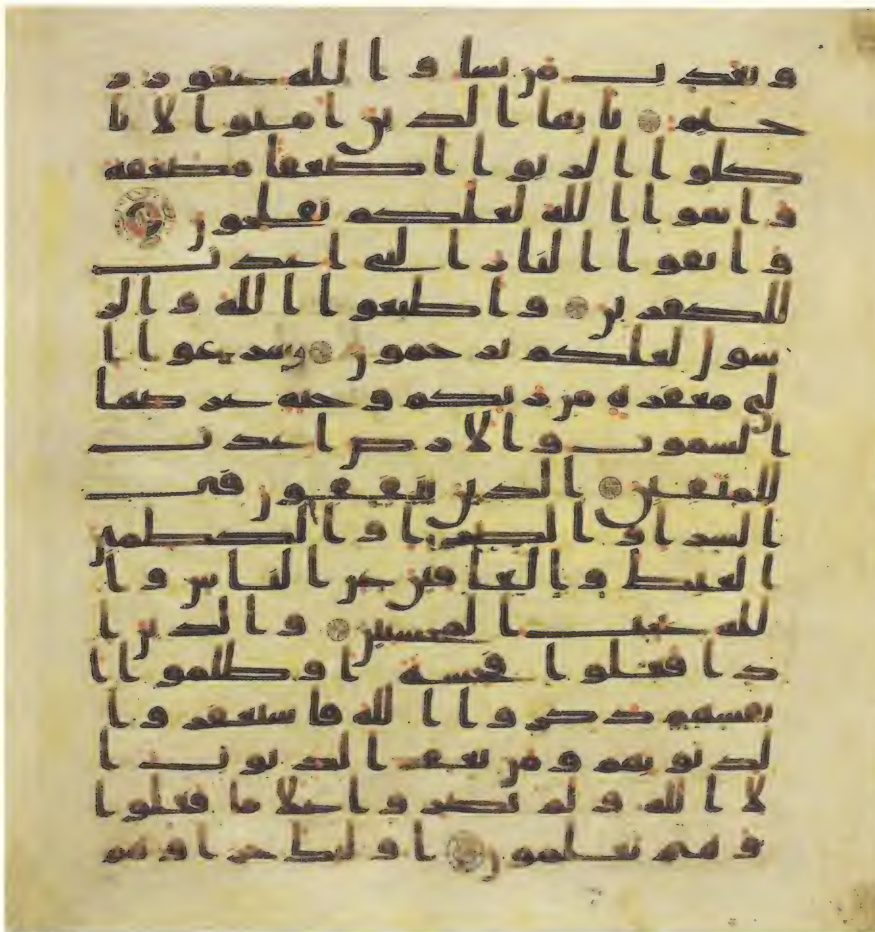 ويعذب من يشا والله غفور ر
حيم يايها الذين امنوا لا تا
كلوا الربوا اضعفا مضعفة
واتقوا الله لعلكم تفلحون
واتقوا النار التي اعدت
للكفرين واطيعوا الله والر
سول لعلكم ترحمون وسرعوا ا
لى مغفرة من ربكم وجنة عرضها
السموت والارض اعدت
للمتقين الذين ينفقون في
السرا والضرا والكظمين
الغيظ والعافين عن الناس وا
لله يحب المحسنين والذين ا
ذا فعلوا فحشة او ظلموا ا
نفسهم ذكروا الله فاستغفروا
لذنوبهم ومن يغفر الذنوب ا
لا الله ولم يصروا على ما فعلوا
وهم يعلمون اولئك جزاوهم